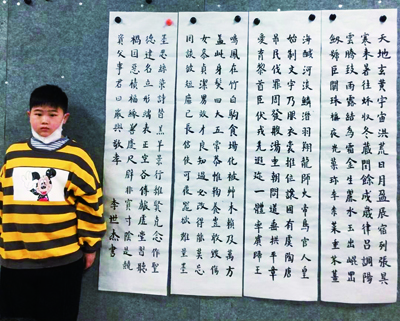 天地玄黄宇宙洪荒日月盈昃辰宿列張
寒来暑往秋收冬藏閏餘成歲律呂調陽
雲騰致雨露結為霜金生麗水玉出崑岡
劍號巨闕珠稱夜光菓珍李柰菜重芥薑
海鹹河淡鱗潛羽翔龍師火帝鳥官人皇
始制文字乃服衣裳推位讓國有虞陶唐
弔民伐罪周發殷湯坐朝問道垂拱平章
愛育黎首臣伏戎羌遐邇一體率賓歸王
鳴鳳在竹白駒食場化被草木賴及萬方
蓋此身髮四大五常恭惟鞠養豈敢毀傷
女慕貞潔男效才良知過必改得能莫忘
罔談彼短靡恃己長信使可覆器欲難量
墨悲絲染詩讚羔羊景行維賢克念作聖
德建名立形端表正空谷傳聲虛堂習聽
禍因惡積福緣善慶尺璧非寶寸陰是競
資父事君曰嚴與敬孝 李世杰書